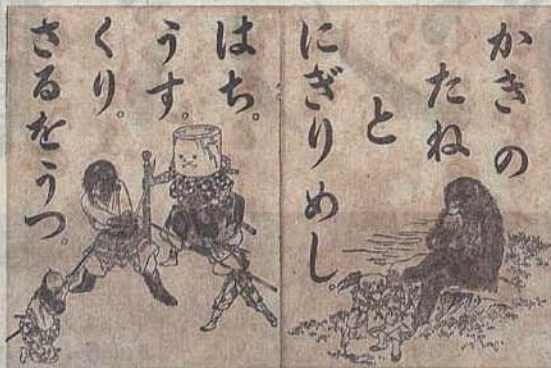 かきの
たね
と
にぎりめし。
はち。
うす。
くり。
さるをうつ。